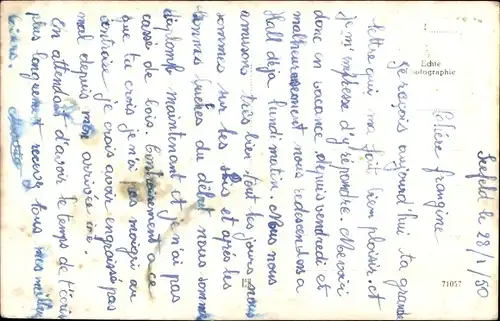 Seefeld le 28/1/50
Chère frangine
Je reçois aujourd'hui ta grande
lettre qui m'a fait bien plaisir. et
je m'empresse d'y répondre. Me voici
donc en vacance depuis vendredi et
malheureusement nous redescendons a
Hall déja lundi matin. Nous nous
amusons très bien tout les jours nous
sommes sur les skis et après les
bonnes buches du début nous sommes
d'aplomb maintenant et je n'ai pas
cassé de bois. Contrairement a ce
que tu crois je n'ai pas maigri au
contraire je crois avoir engraissé pas
mal depuis mon arrivée ici.
En attendant d'avoir le temps de t'écrire
plus longuement reçois tous mes meilleurs
baisers.
Echte
Photographie
71057